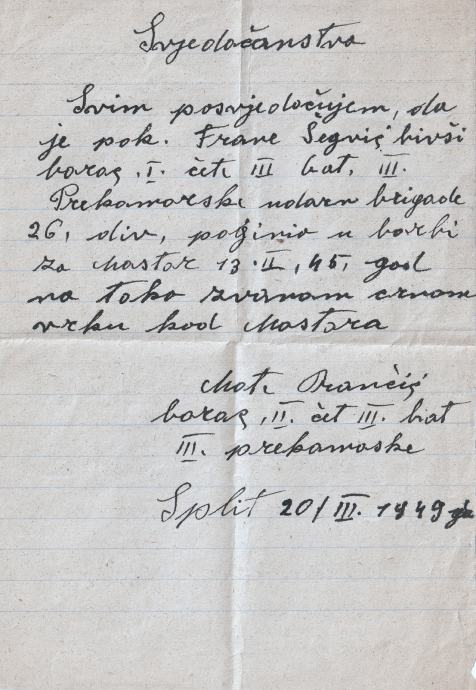 Svjedočanstvo
Svim posvjedočujem, da
je pok. Frane Šegvić bivši
borac, I. čet. III bat. III.
Prekomorske udarn brigade
26, div, poginio u borbi
za Mostar 13.II,45, god
na toko zvanom crnom
vrhu kod Mostara
Mate Prančić
borac, II. čet III. bat
III. prekomoske
Split 20/III. 1949